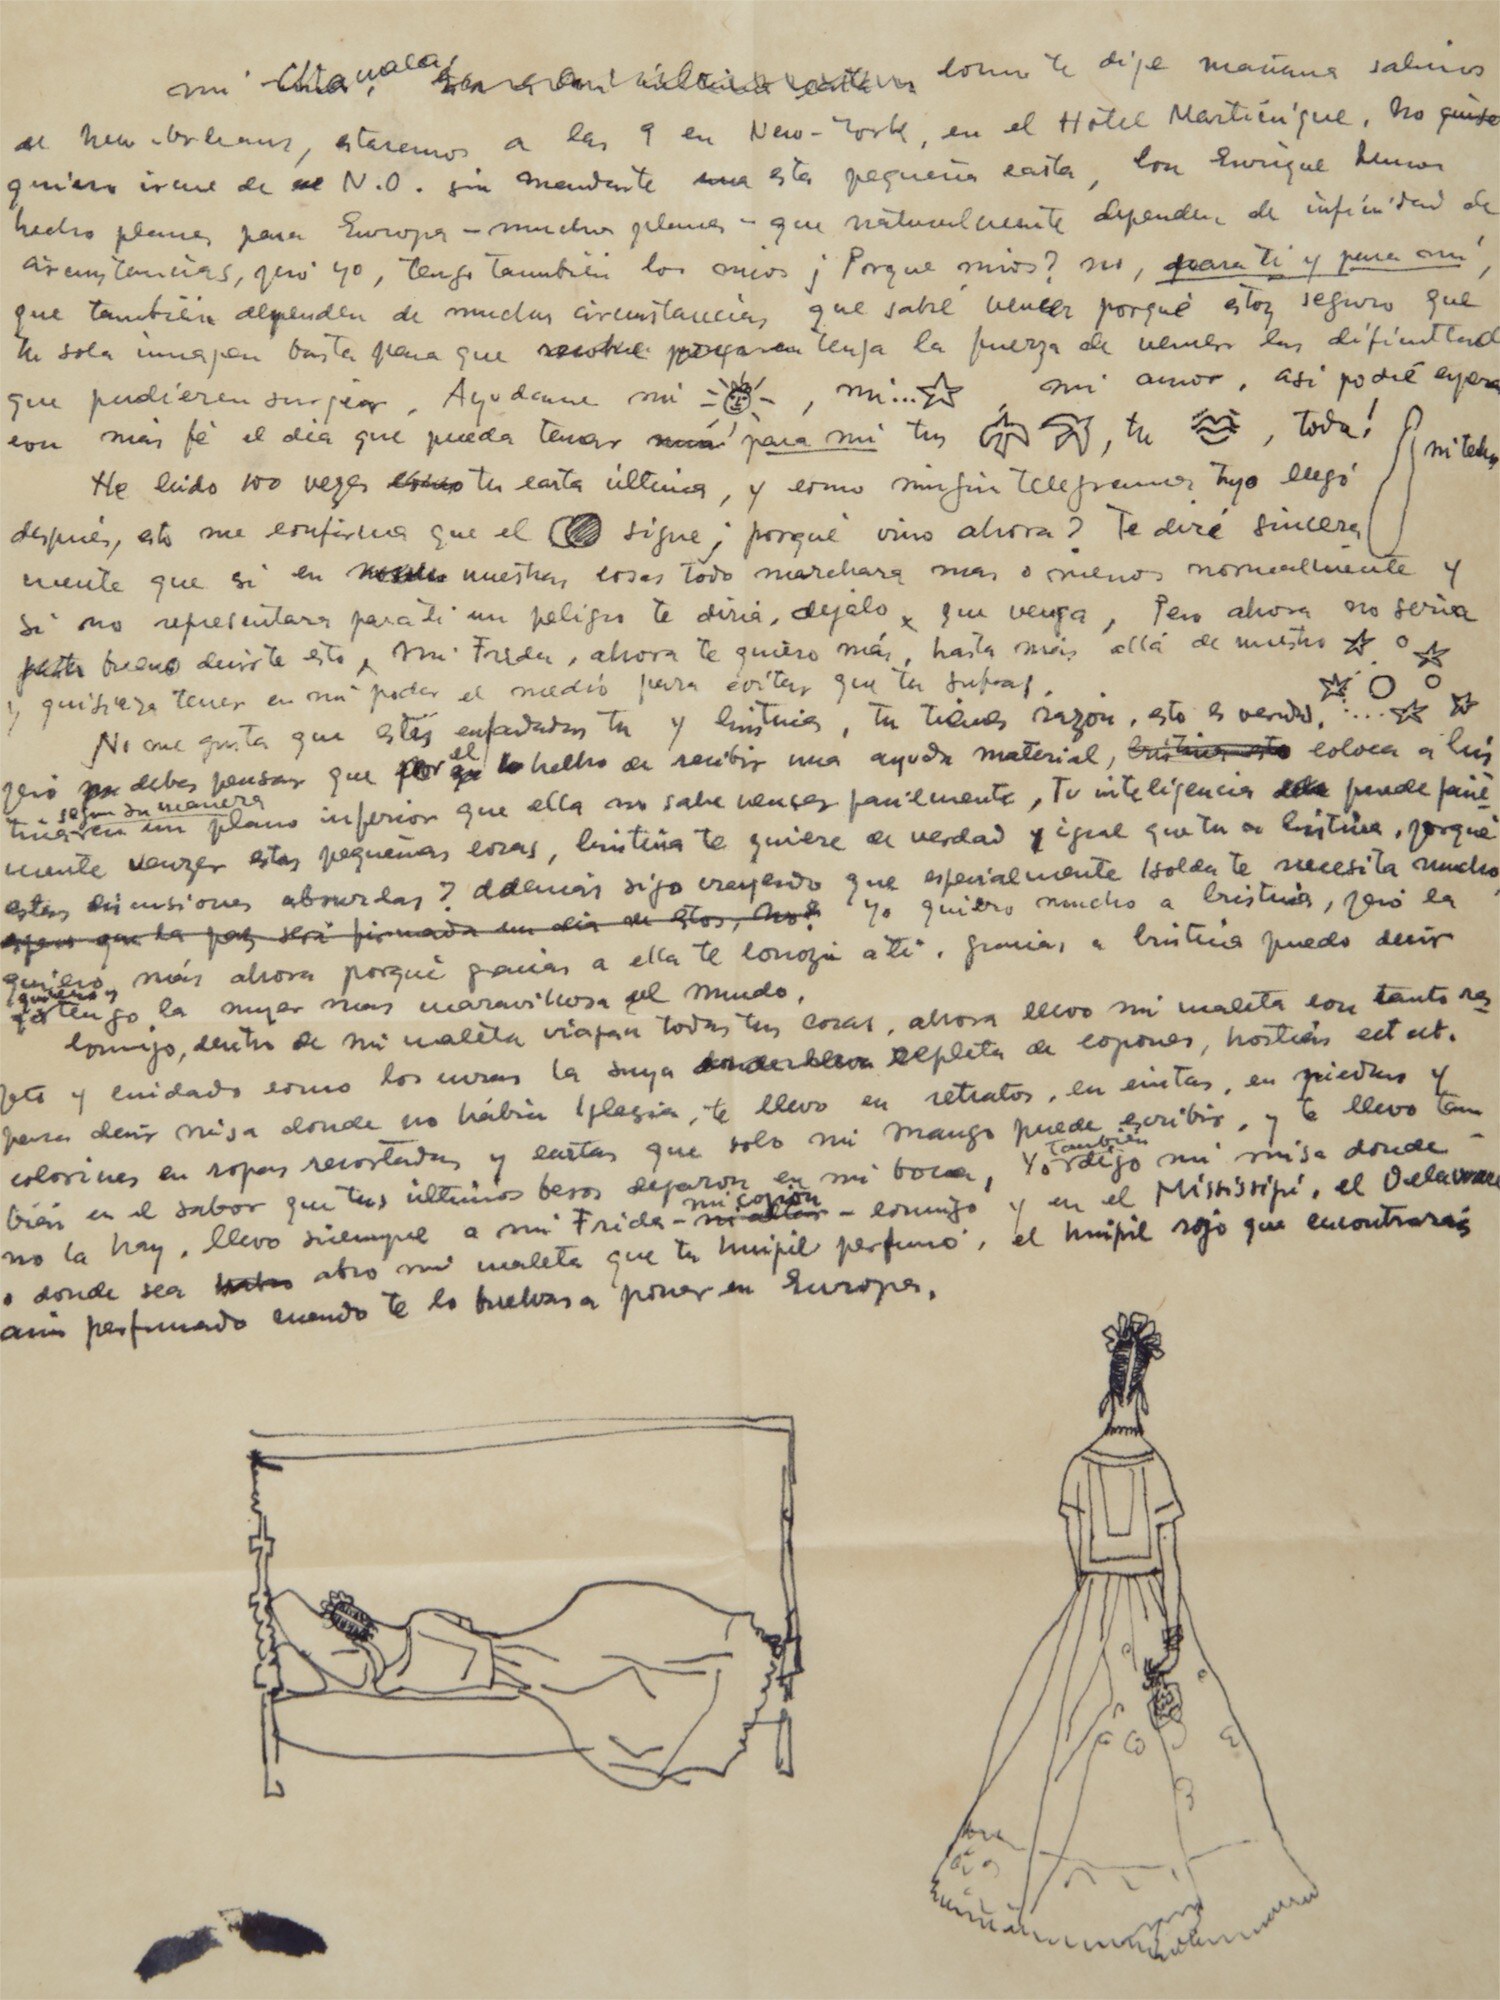 mi Chamaca, como te dije mañana salimos
de New-Orleans, estaremos a las 9 en New-York, en el Hotel Martinique. No quise
quiero irme de N.O. sin mandarte esta pequeña carta, con Enrique hemos
hecho planes para Europa - muchos planes - que naturalmente dependen de infinidad de
circunstancias, pero yo, tengo también los mios ¿Porque mios? no, para ti y para mi,
que también dependen de muchas circunstancias que sabré vencer porqué estoy seguro que
tu sola imagen basta para que tenga la fuerza de vencer las dificultad
que pudieren surgir. Ayudame mi , mi... , mi amor, asi podré esperar
con más fé el dia que pueda tener para mi tus , tu , toda!
mi tehu
He leido 100 veces tu carta última, y como ningún telegrama tuyo llegó
después, esto me confirma que el sigue; porqué vino ahora? Te diré sincera
mente que si en nuestras cosas todo marchara mas o menos normalmente y
si no representara para ti un peligro te diria, dejalo, que venga, Pero ahora no seria
bueno decirte esto, mi Frida, ahora te quiero más, hasta más allá de nuestro
y quisiera tener en mi poder el medio para evitar que tu sufras.
No me gusta que estés enfadadas tu y Cristina, tu tienes razón, esto es verdad,
pero no debes pensar que el hecho de recibir una ayuda material, coloca a Cris
tina según su manera en un plano inferior que ella no sabe vencer facilmente, Tu inteligencia puede facil-
mente venzer estas pequeñas cosas, Cristina te quiere de verdad y igual que tu a Cristina, porqué
estas discusiones absurdas? Además sigo creyendo que especialmente Isolda te necesita mucho,
espero que la paz será firmada un dia de estos, no? Yo quiero mucho a Cristina, pero la
quiero más ahora porqué gracias a ella te conozi a ti. Gracias a Cristina puedo decir
que quiero y tengo la mujer mas maravillosa del mundo.
Conmigo, dentro de mi maleta viajan todas tus cosas, ahora llevo mi maleta con tanto res-
peto y cuidado como los curas la suya repleta de copones, hostias ect ect.
para decir misa donde no habia Iglesia, te llevo en retratos, en cintas, en piedras y
colorines en ropas recortadas y cartas que solo mi mango puede escribir, y te llevo tam
bién en el sabor que tus últimos besos dejaron en mi boca, Yo también digo mi misa donde
no la hay, llevo siempre a mi Frida - mi altar mi copón - conmigo y en el Mississipi, el Delaware
o donde sea abro mi maleta que tu huipil perfumó, el huipil rojo que encontrarás
aún perfumado cuando te lo buelvas a poner en Europa.